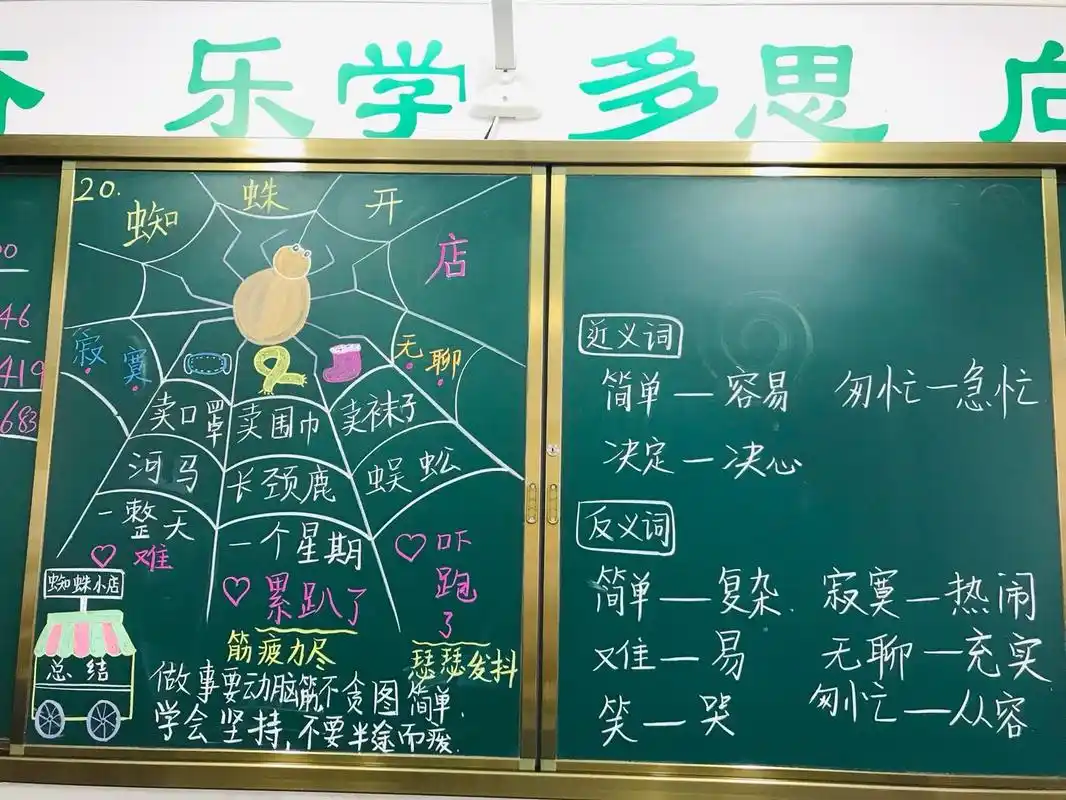 乐 学 多 思 向
20.
蜘 蛛 开 店
00
46
419
683
寂 寞
无聊
卖口罩 卖围巾 卖袜子
河马 长颈鹿 蜈蚣
一整天 一个星期
难
累趴了
筋疲力尽
吓跑了
瑟瑟发抖
蜘蛛小店
总 结
做事要动脑筋不贪图简单.
学会坚持,不要半途而废.
近义词
简单—容易 匆忙—急忙
决定—决心
反义词
简单—复杂. 寂寞—热闹
难—易 无聊—充实
笑—哭 匆忙—从容